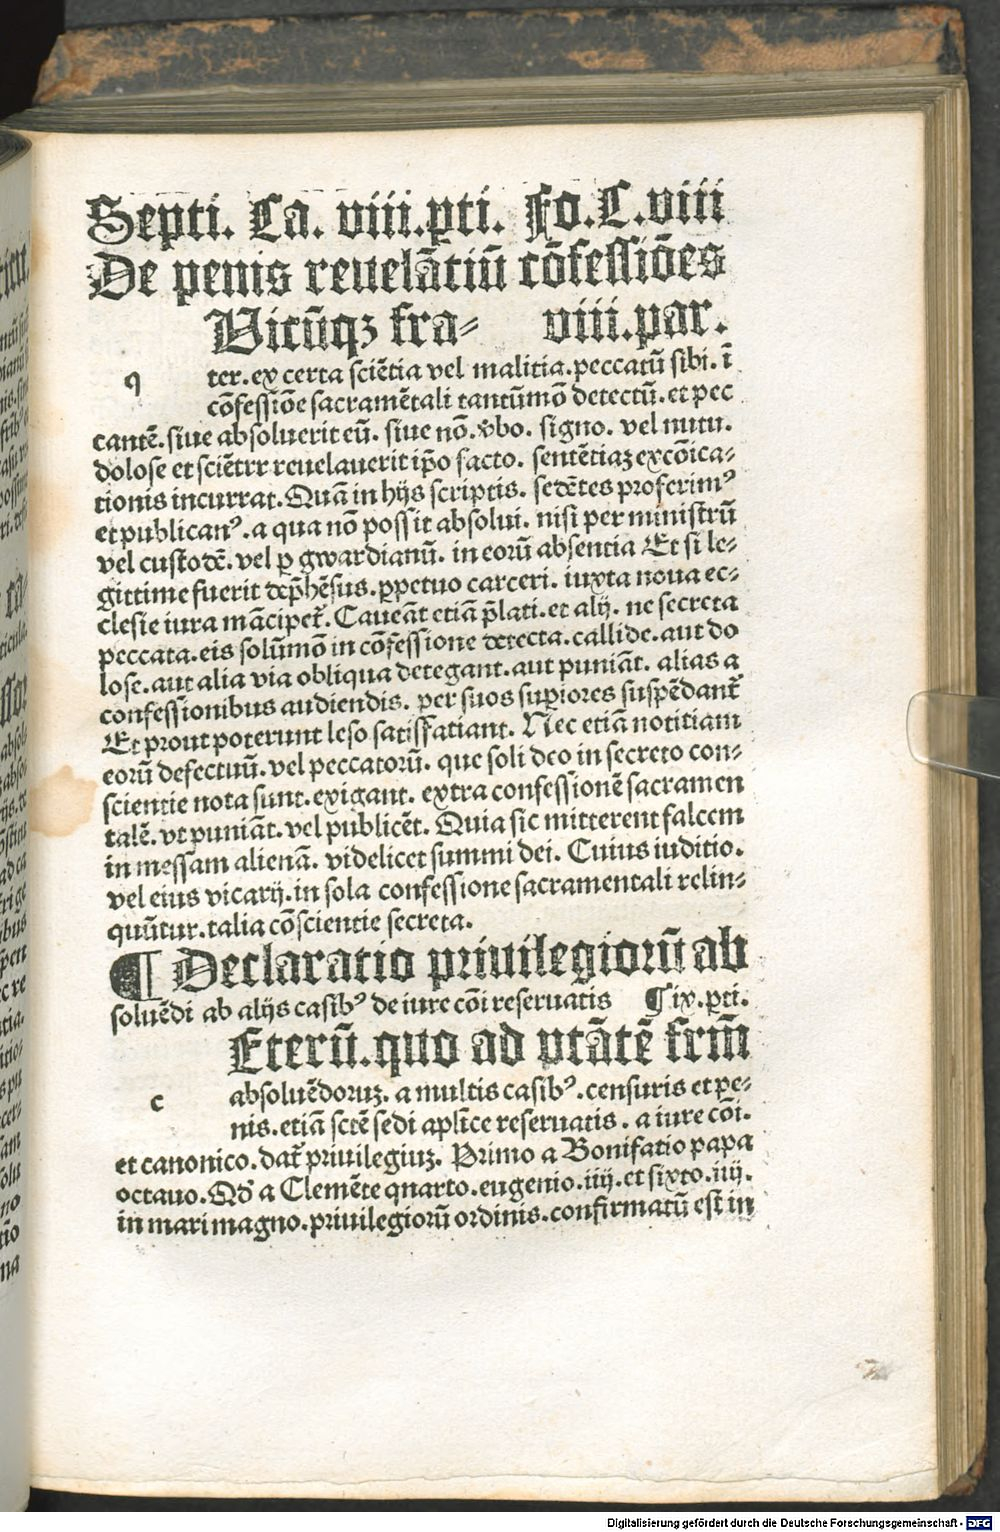 Septi. Ca. viii.pti. Fo.C.viii
De penis reuelãtiũ cõfessiões
Uicũqꝫ fra⸗ viii.par.
q ter. ex certa sciẽtia vel malitia.peccatũ sibi. ĩ
cõfessiõe sacramẽtali tantũmõ detectũ. et pec
cantẽ. siue absoluerit eũ. siue nõ. v̾bo. signo. vel nutu.
dolose et sciẽtrr reuelauerit ip̃o facto. sentẽtiaꝫ excõica⸗
tionis incurrat. Quã in hijs scriptis. sedẽtes proferimꝰ
et publicanꝰ. a qua nõ possit absolui. nisi per ministrũ
vel custodẽ. vel ꝑ gwardianũ. in eorũ absentia Et si le⸗
gittime fuerit dep̃hẽsus. ꝑpetuo carceri. iuxta noua ec⸗
clesie iura mãcipet᷑. Caueãt etiã p̃lati. et alij. ne secreta
peccata. eis solũmõ in cõfessione detecta. callide. aut do
lose. aut alia via obliqua detegant. aut puniãt. alias a
confessionibus audiendis. per suos suꝑiores suspẽdant᷑
Et prout poterunt leso satisffatiant. Nec etiã notitiam
eorũ defectuũ. vel peccatorũ. que soli deo in secreto con⸗
scientie nota sunt. exigant. extra confessionẽ sacramen
talẽ. vt puniãt. vel publicẽt. Quia sic mitterent falcem
in messam alienã. videlicet summi dei. Cuius iuditio.
vel eius vicarij. in sola confessione sacramentali relin⸗
quũtur. talia cõscientie secreta.
¶ Declaratio priuilegiorũ ab
soluẽdi ab alijs casibꝰ de iure cõi reseruatis ¶ ix.pti.
Eterũ.quo ad ptãtẽ frm̃
c absoluẽdoruꝫ. a multis casibꝰ. censuris et pe⸗
nis. etiã sctẽ sedi apl̃ice reseruatis. a iure cõi.
et canonico. dat᷑ priuilegiuꝫ. Primo a Bonifatio papa
octauo. Qđ a Clemẽte quarto. eugenio. iiij. et sixto. iiij.
in mari magno. priuilegiorũ ordinis. confirmatũ est in
Digitalisierung gefördert durch die Deutsche Forschungsgemeinschaft - DFG